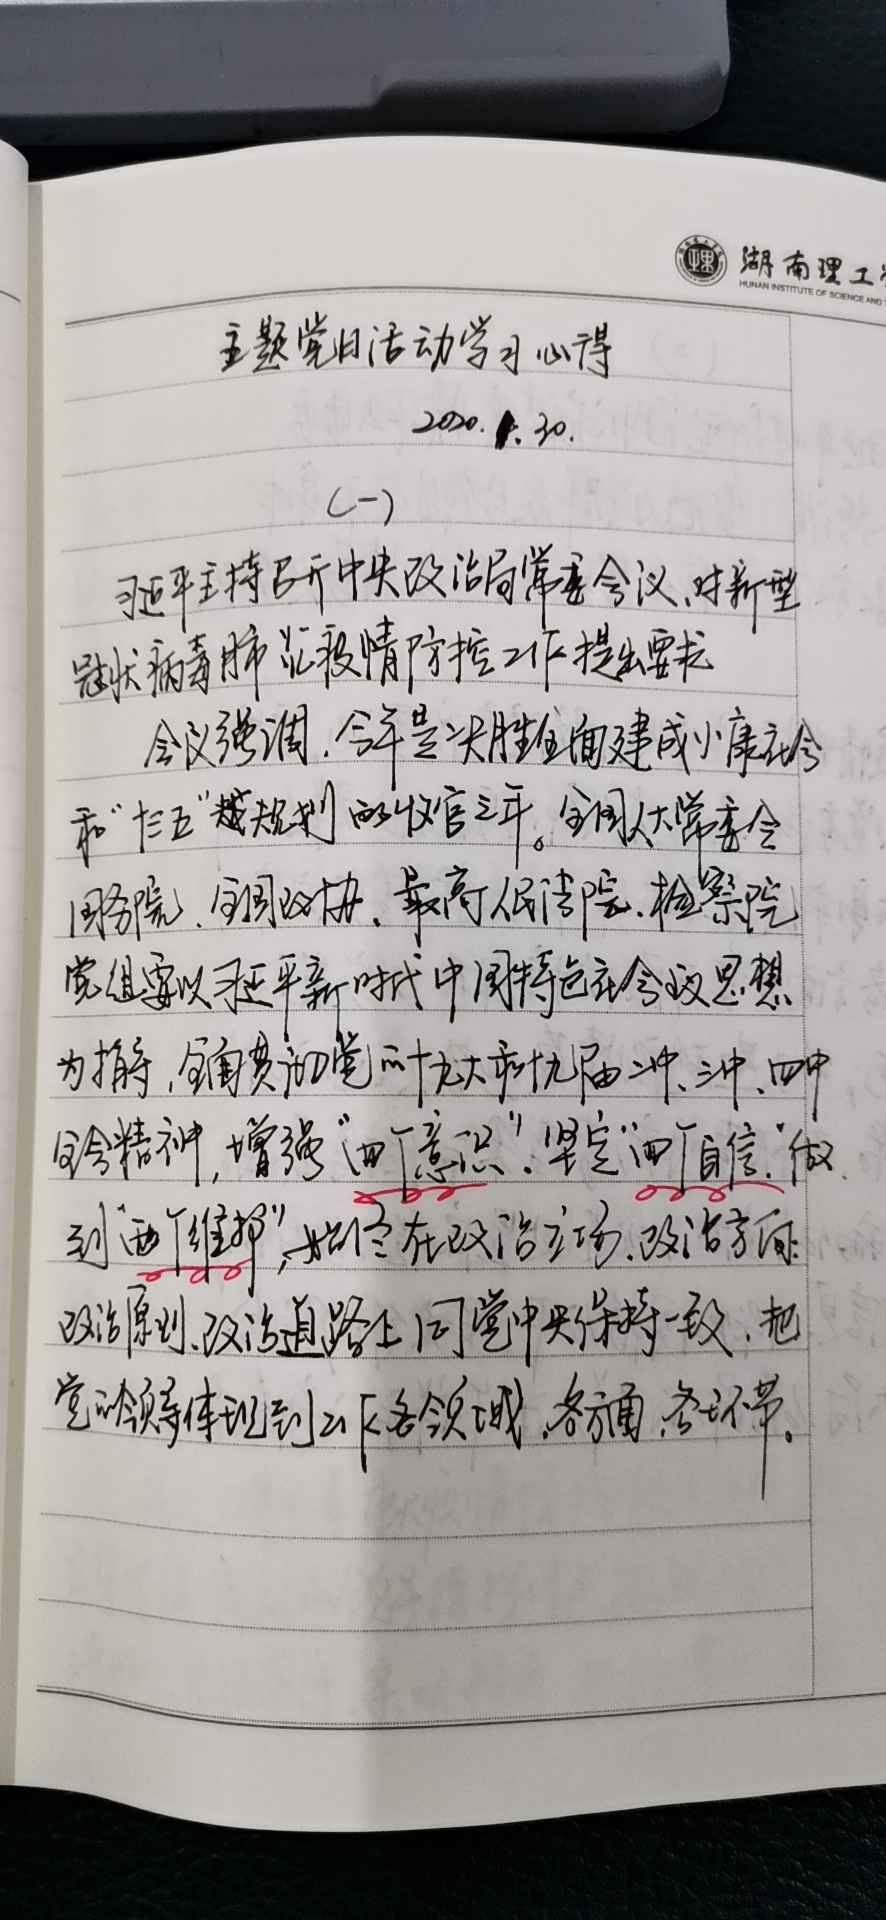 湖南理工学
HUNAN INSTITUTE OF SCIENCE AND
主题党日活动学习心得
2020.1.30.
(一)
习近平主持召开中央政治局常委会议、对新型
冠状病毒肺炎疫情防控工作提出要求
会议强调,今年是决胜全面建成小康社会
和“十三五”规划的收官之年。全国人大常委会
国务院、全国政协、最高人民法院、检察院
党组要以习近平新时代中国特色社会主义思想
为指导,全面贯彻党的十九大和十九届二中、三中、四中
全会精神,增强“四个意识”、坚定“四个自信”、做
到“两个维护”,始终在政治立场、政治方向
政治原则、政治道路上同党中央保持一致、把
党的领导体现到工作各领域、各方面、各环节。